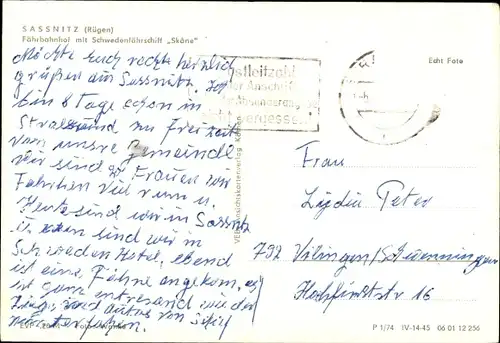 SASSNITZ (Rügen)
Fährbahnhof mit Schwedenfährschiff „Skåne"
Echt Foto
Möchte Euch recht herzlich
grüßen aus Sassnitz. Ich
bin 8 Tage schon in
Stralsund zu Freizeit
von unsre Gemeinde
Wir sind Frauen wir
Fahrten viel rum u.
Heute sind wir in Sassnitz
sind wir in
Schweden Hotel, ebend
ist eine Fähre angekom. es
ist ganz wie der
Züge und autos von Schif
stleitzahl
der Anschrift
Absenderang
ergessen
Frau
Lydia Peter
792 Vilingen/
16
P 1/74 IV-14-45 06 01 12 256